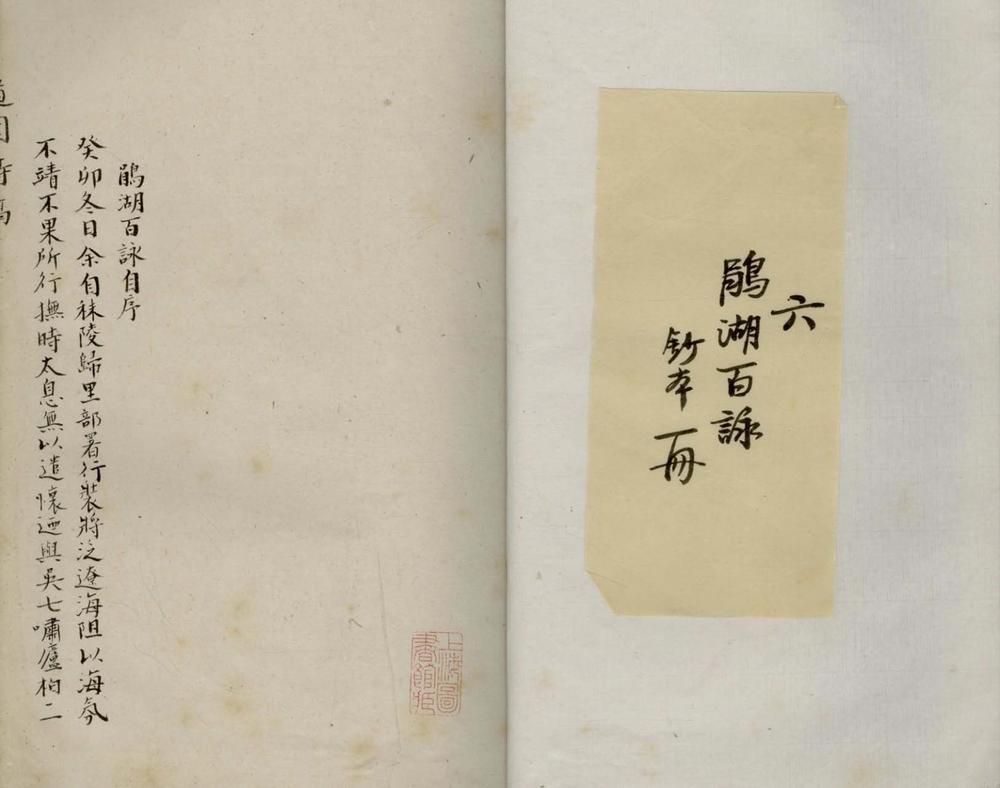 六
鵑湖百詠
鈔本一冊
鵑湖百詠自序
癸卯冬日余自秣陵歸里部署行裝將泛遼海阻以海氛
不靖不果所行撫時太息無以遣懷迺與吳七嘯廬柏二
上海圖
書館